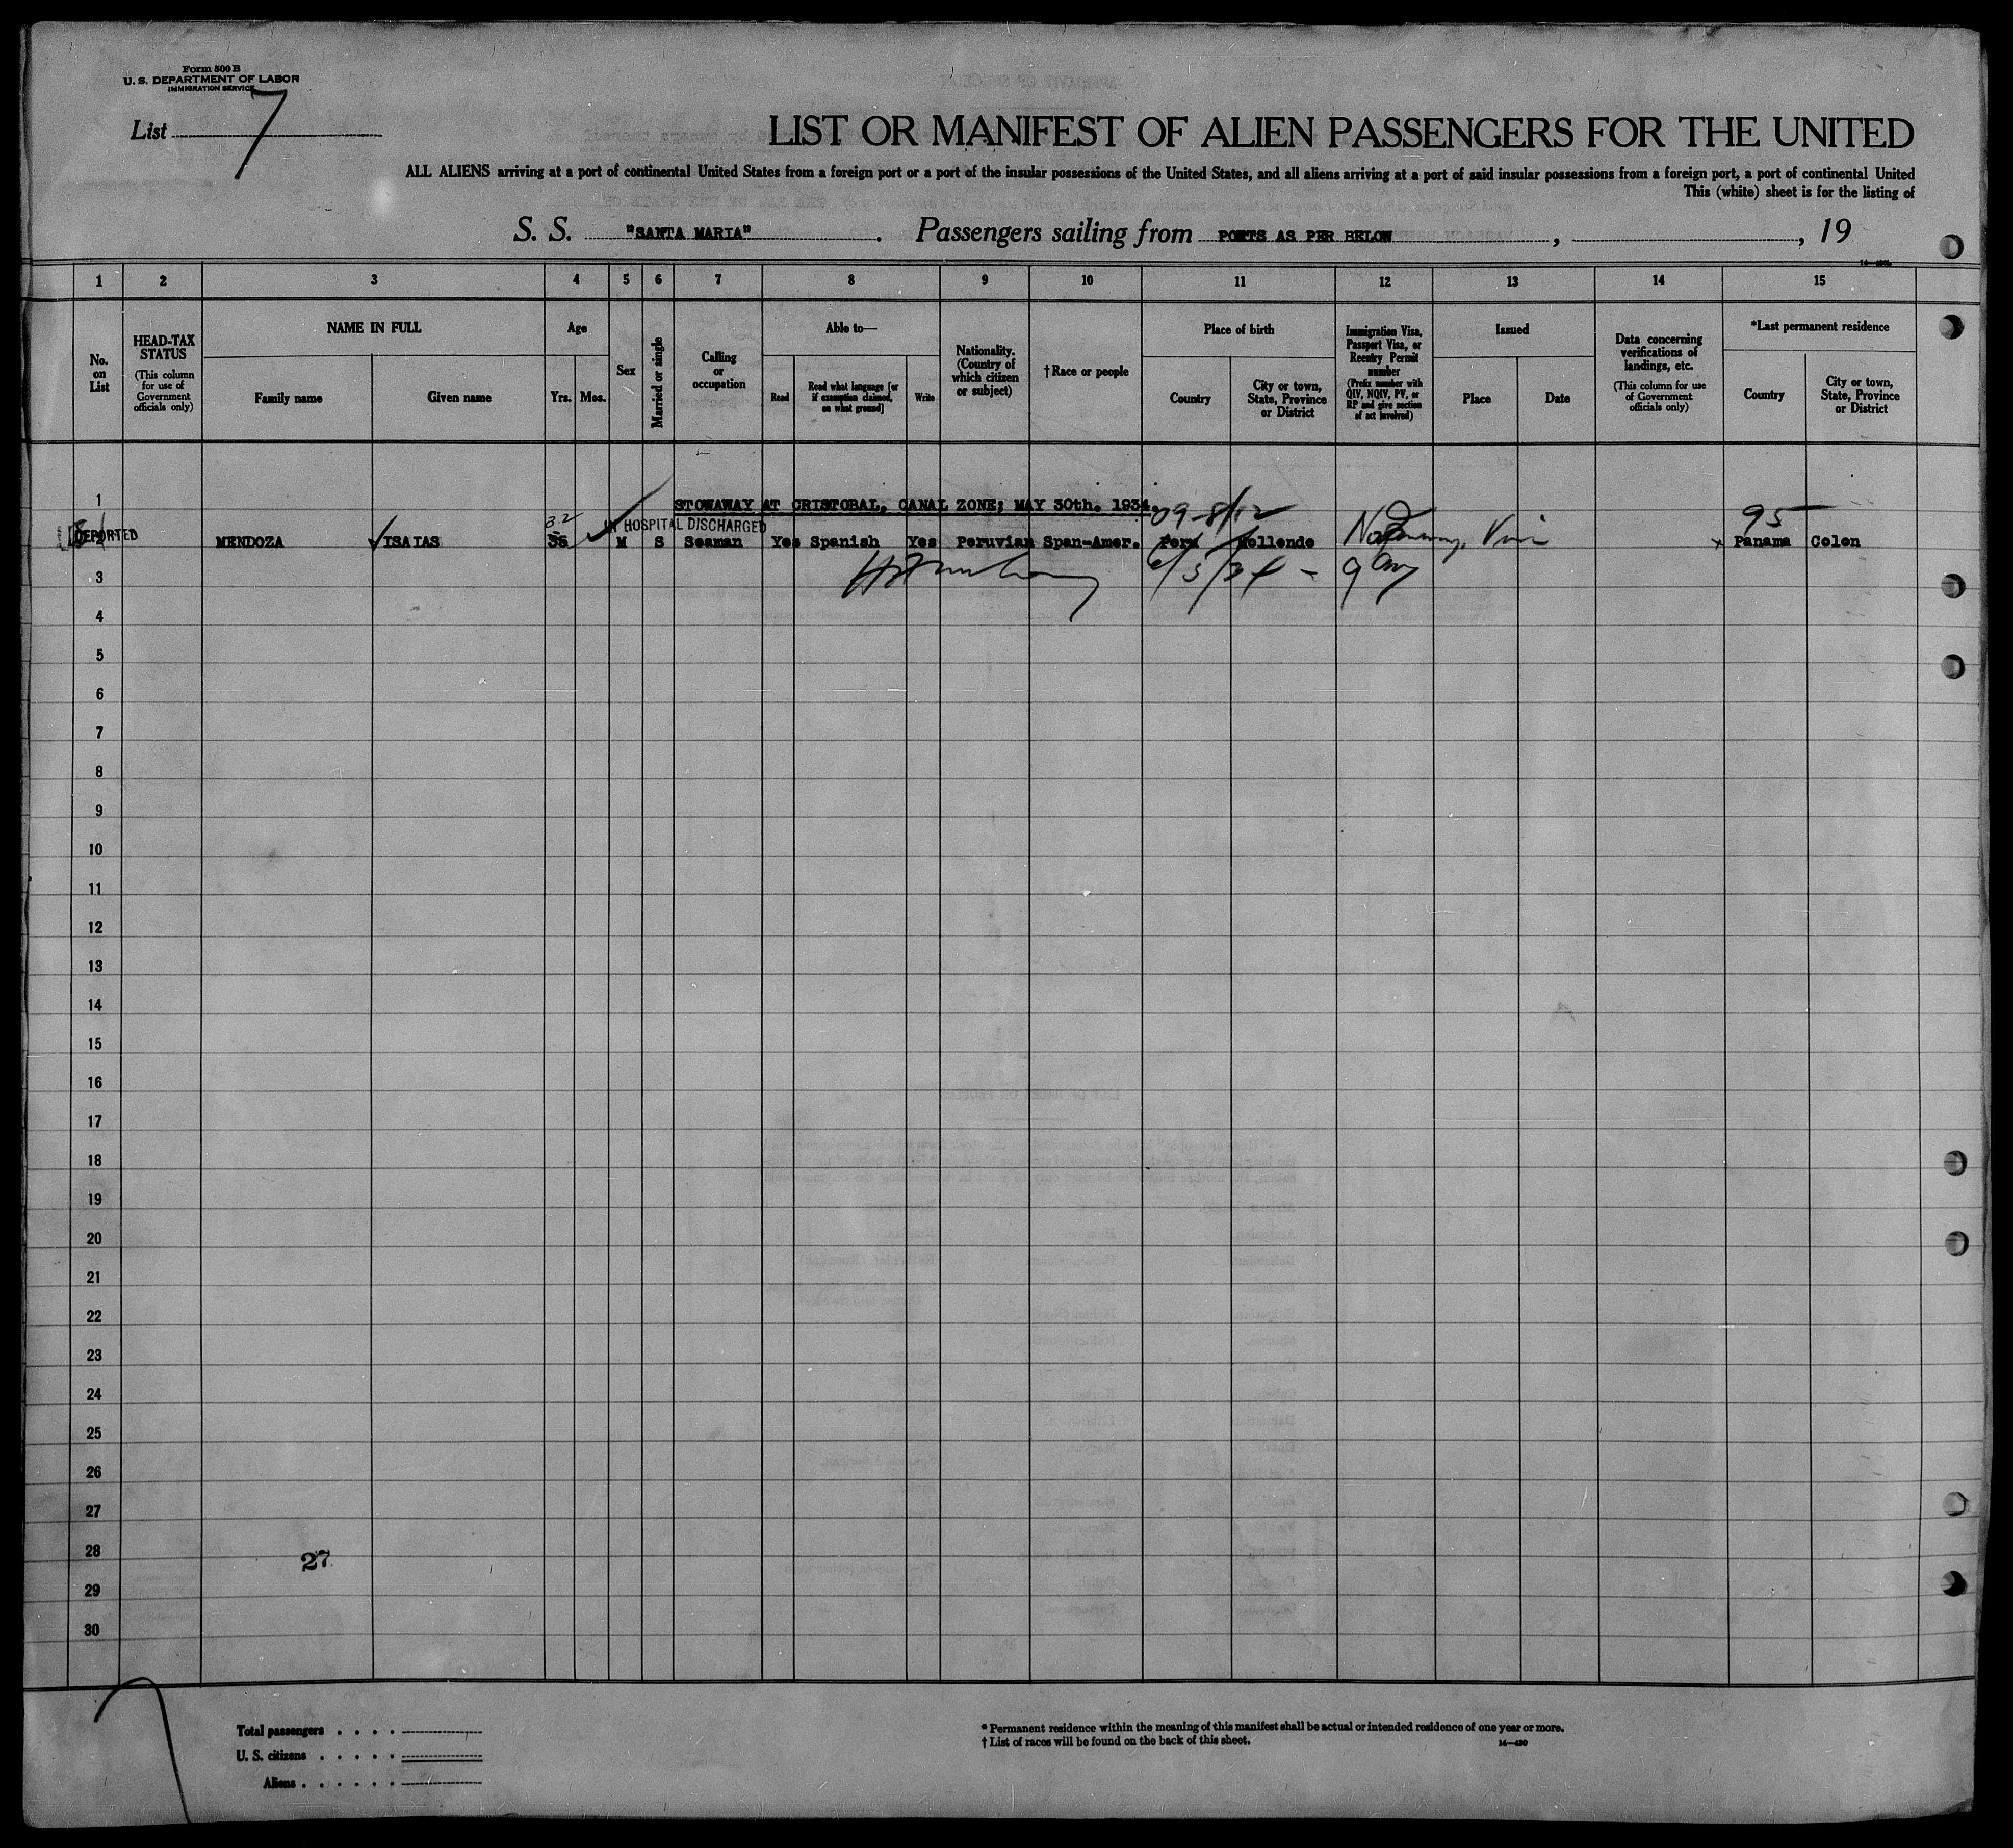 Form 500 B
U. S. DEPARTMENT OF LABOR
IMMIGRATION SERVICE
List 7
LIST OR MANIFEST OF ALIEN PASSENGERS FOR THE UNITED
ALL ALIENS arriving at a port of continental United States from a foreign port or a port of the insular possessions of the United States, and all aliens arriving at a port of said insular possessions from a foreign port, a port of continental United
This (white) sheet is for the listing of
S. S. "SANTA MARIA". Passengers sailing from PORTS AS PER BELOW, , 19
1 2 3 4 5 6 7 8 9 10 11 12 13 14 15
No. on List
HEAD-TAX STATUS (This column for use of Government officials only)
NAME IN FULL
Family name Given name
Age
Yrs. Mos.
Sex
Married or single
Calling or occupation
Able to—
Read
Read what language [or if exemption claimed, on what ground]
Write
Nationality. (Country of which citizen or subject)
†Race or people
Place of birth
Country
City or town, State, Province or District
Immigration Visa, Passport Visa, or Reentry Permit number (Prefix number with QIV, NQIV, PV, or RP and give section of act involved)
Issued
Place Date
Data concerning verifications of landings, etc. (This column for use of Government officials only)
*Last permanent residence
Country
City or town, State, Province or District
1
STOWAWAY AT CRISTOBAL, CANAL ZONE; MAY 30th. 1934.
09-8/12
95
DEPORTED
32
IN HOSPITAL DISCHARGED
2 MENDOZA ISAIAS 35 M S Seaman Yes Spanish Yes Peruvian Span-Amer. Peru Mollendo No Panama Colon
3
6/5/34 - 9
4
5
6
7
8
9
10
11
12
13
14
15
16
17
18
19
20
21
22
23
24
25
26
27
28 27
29
30
Total passengers . . . .
U. S. citizens . . . . .
Aliens . . . . . .
* Permanent residence within the meaning of this manifest shall be actual or intended residence of one year or more.
† List of races will be found on the back of this sheet.
14—430